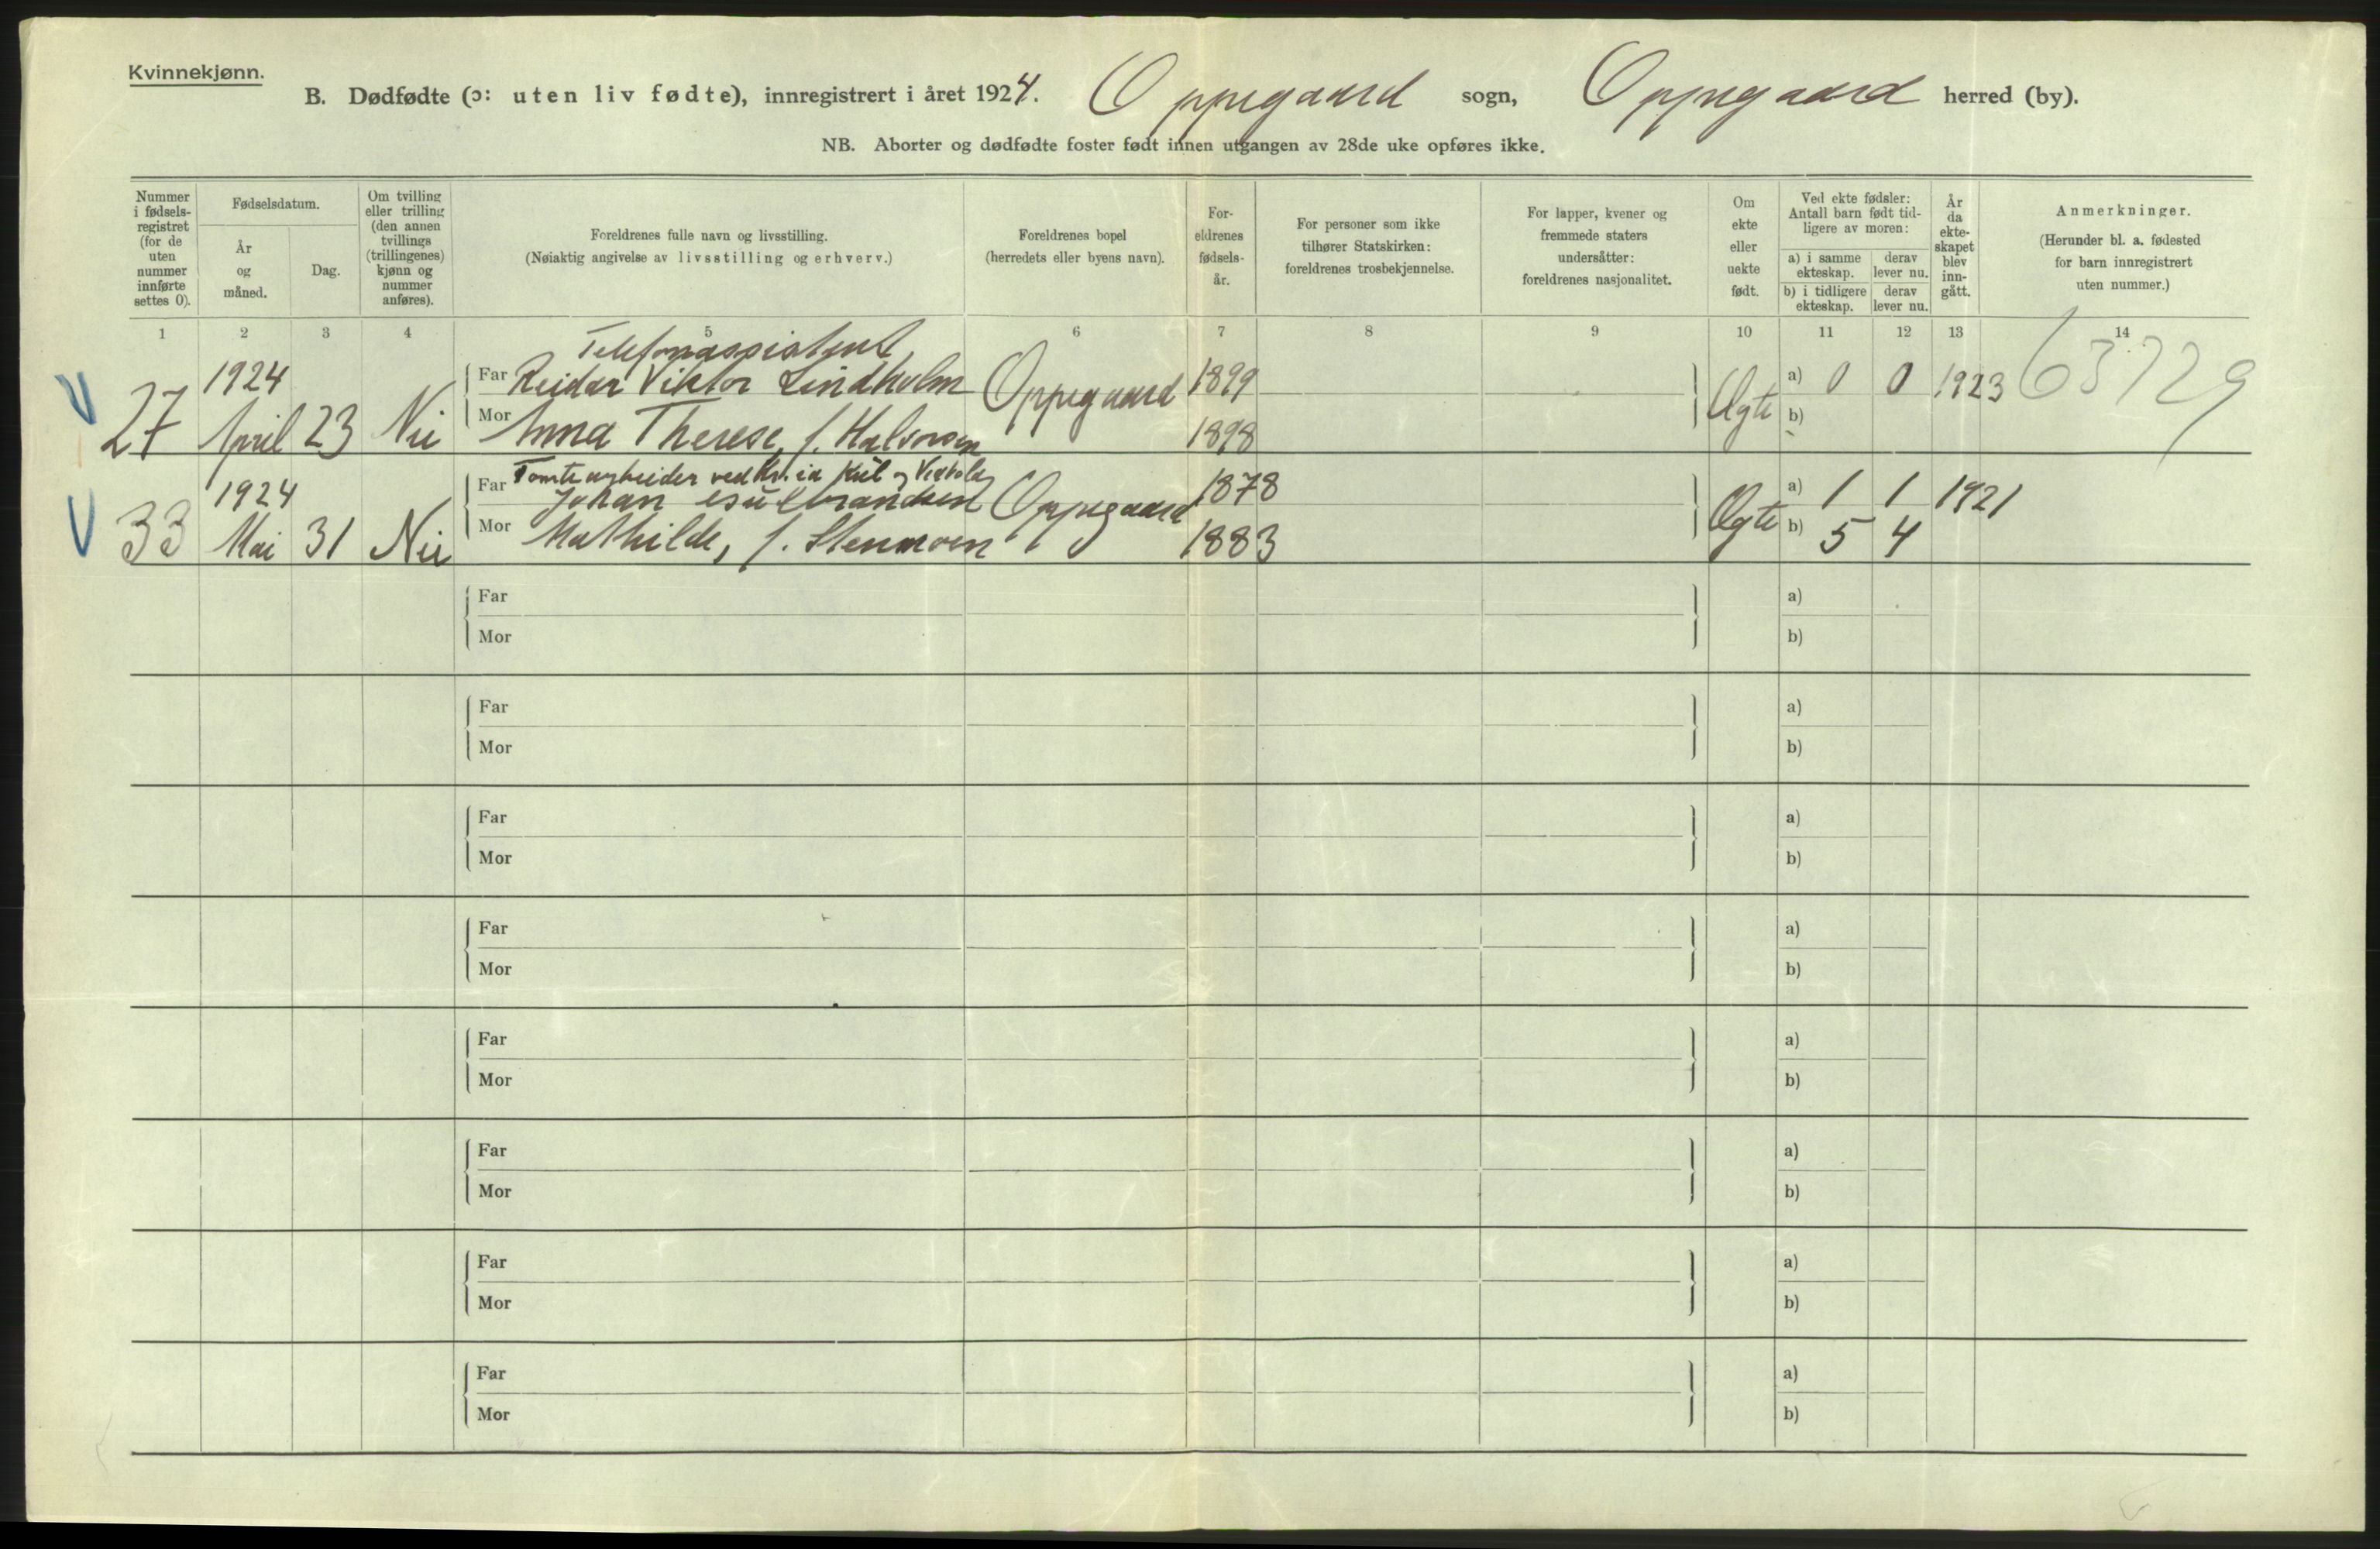 Kvinnekjønn.
B. Dødfødte (ɔ: uten liv fødte), innregistrert i året 1924. Oppegaard sogn, Oppegaard herred (by).
NB. Aborter og dødfødte foster født innen utgangen av 28de uke opføres ikke.
Nummer i fødsels-registret (for de uten nummer innførte settes 0).
Fødselsdatum.
År og måned.
Dag.
Om tvilling eller trilling (den annen tvillings (trillingenes) kjønn og nummer anføres).
Foreldrenes fulle navn og livsstilling.
(Nøiaktig angivelse av livsstilling og erhverv.)
Foreldrenes bopel
(herredets eller byens navn).
For-eldrenes fødsels-år.
For personer som ikke tilhører Statskirken: foreldrenes trosbekjennelse.
For lapper, kvener og fremmede staters undersåtter: foreldrenes nasjonalitet.
Om ekte eller uekte født.
Ved ekte fødsler: Antall barn født tid-ligere av moren:
a) i samme ekteskap.
derav lever nu.
b) i tidligere ekteskap.
derav lever nu.
År da ekte-skapet blev inn-gått.
Anmerkninger.
(Herunder bl. a. fødested for barn innregistrert uten nummer.)
1 2 3 4 5 6 7 8 9 10 11 12 13 14
Telefonassistent
27 1924 April 23 Nei Far Reidar Viktor Lindholm Oppegaard 1899 Ægte a) 0 0 1923 63729
Mor Anna Therese, f. Halvorsen 1898 b)
Tomtearbeider ved Kr.ia Kul og Vedhold
33 1924 Mai 31 Nei Far Johan Gulbrandsen Oppegaard 1878 Ægte a) 1 1 1921
Mor Mathilde, f. Stenmoen 1883 b) 5 4
Far a)
Mor b)
Far a)
Mor b)
Far a)
Mor b)
Far a)
Mor b)
Far a)
Mor b)
Far a)
Mor b)
Far a)
Mor b)
Far a)
Mor b)